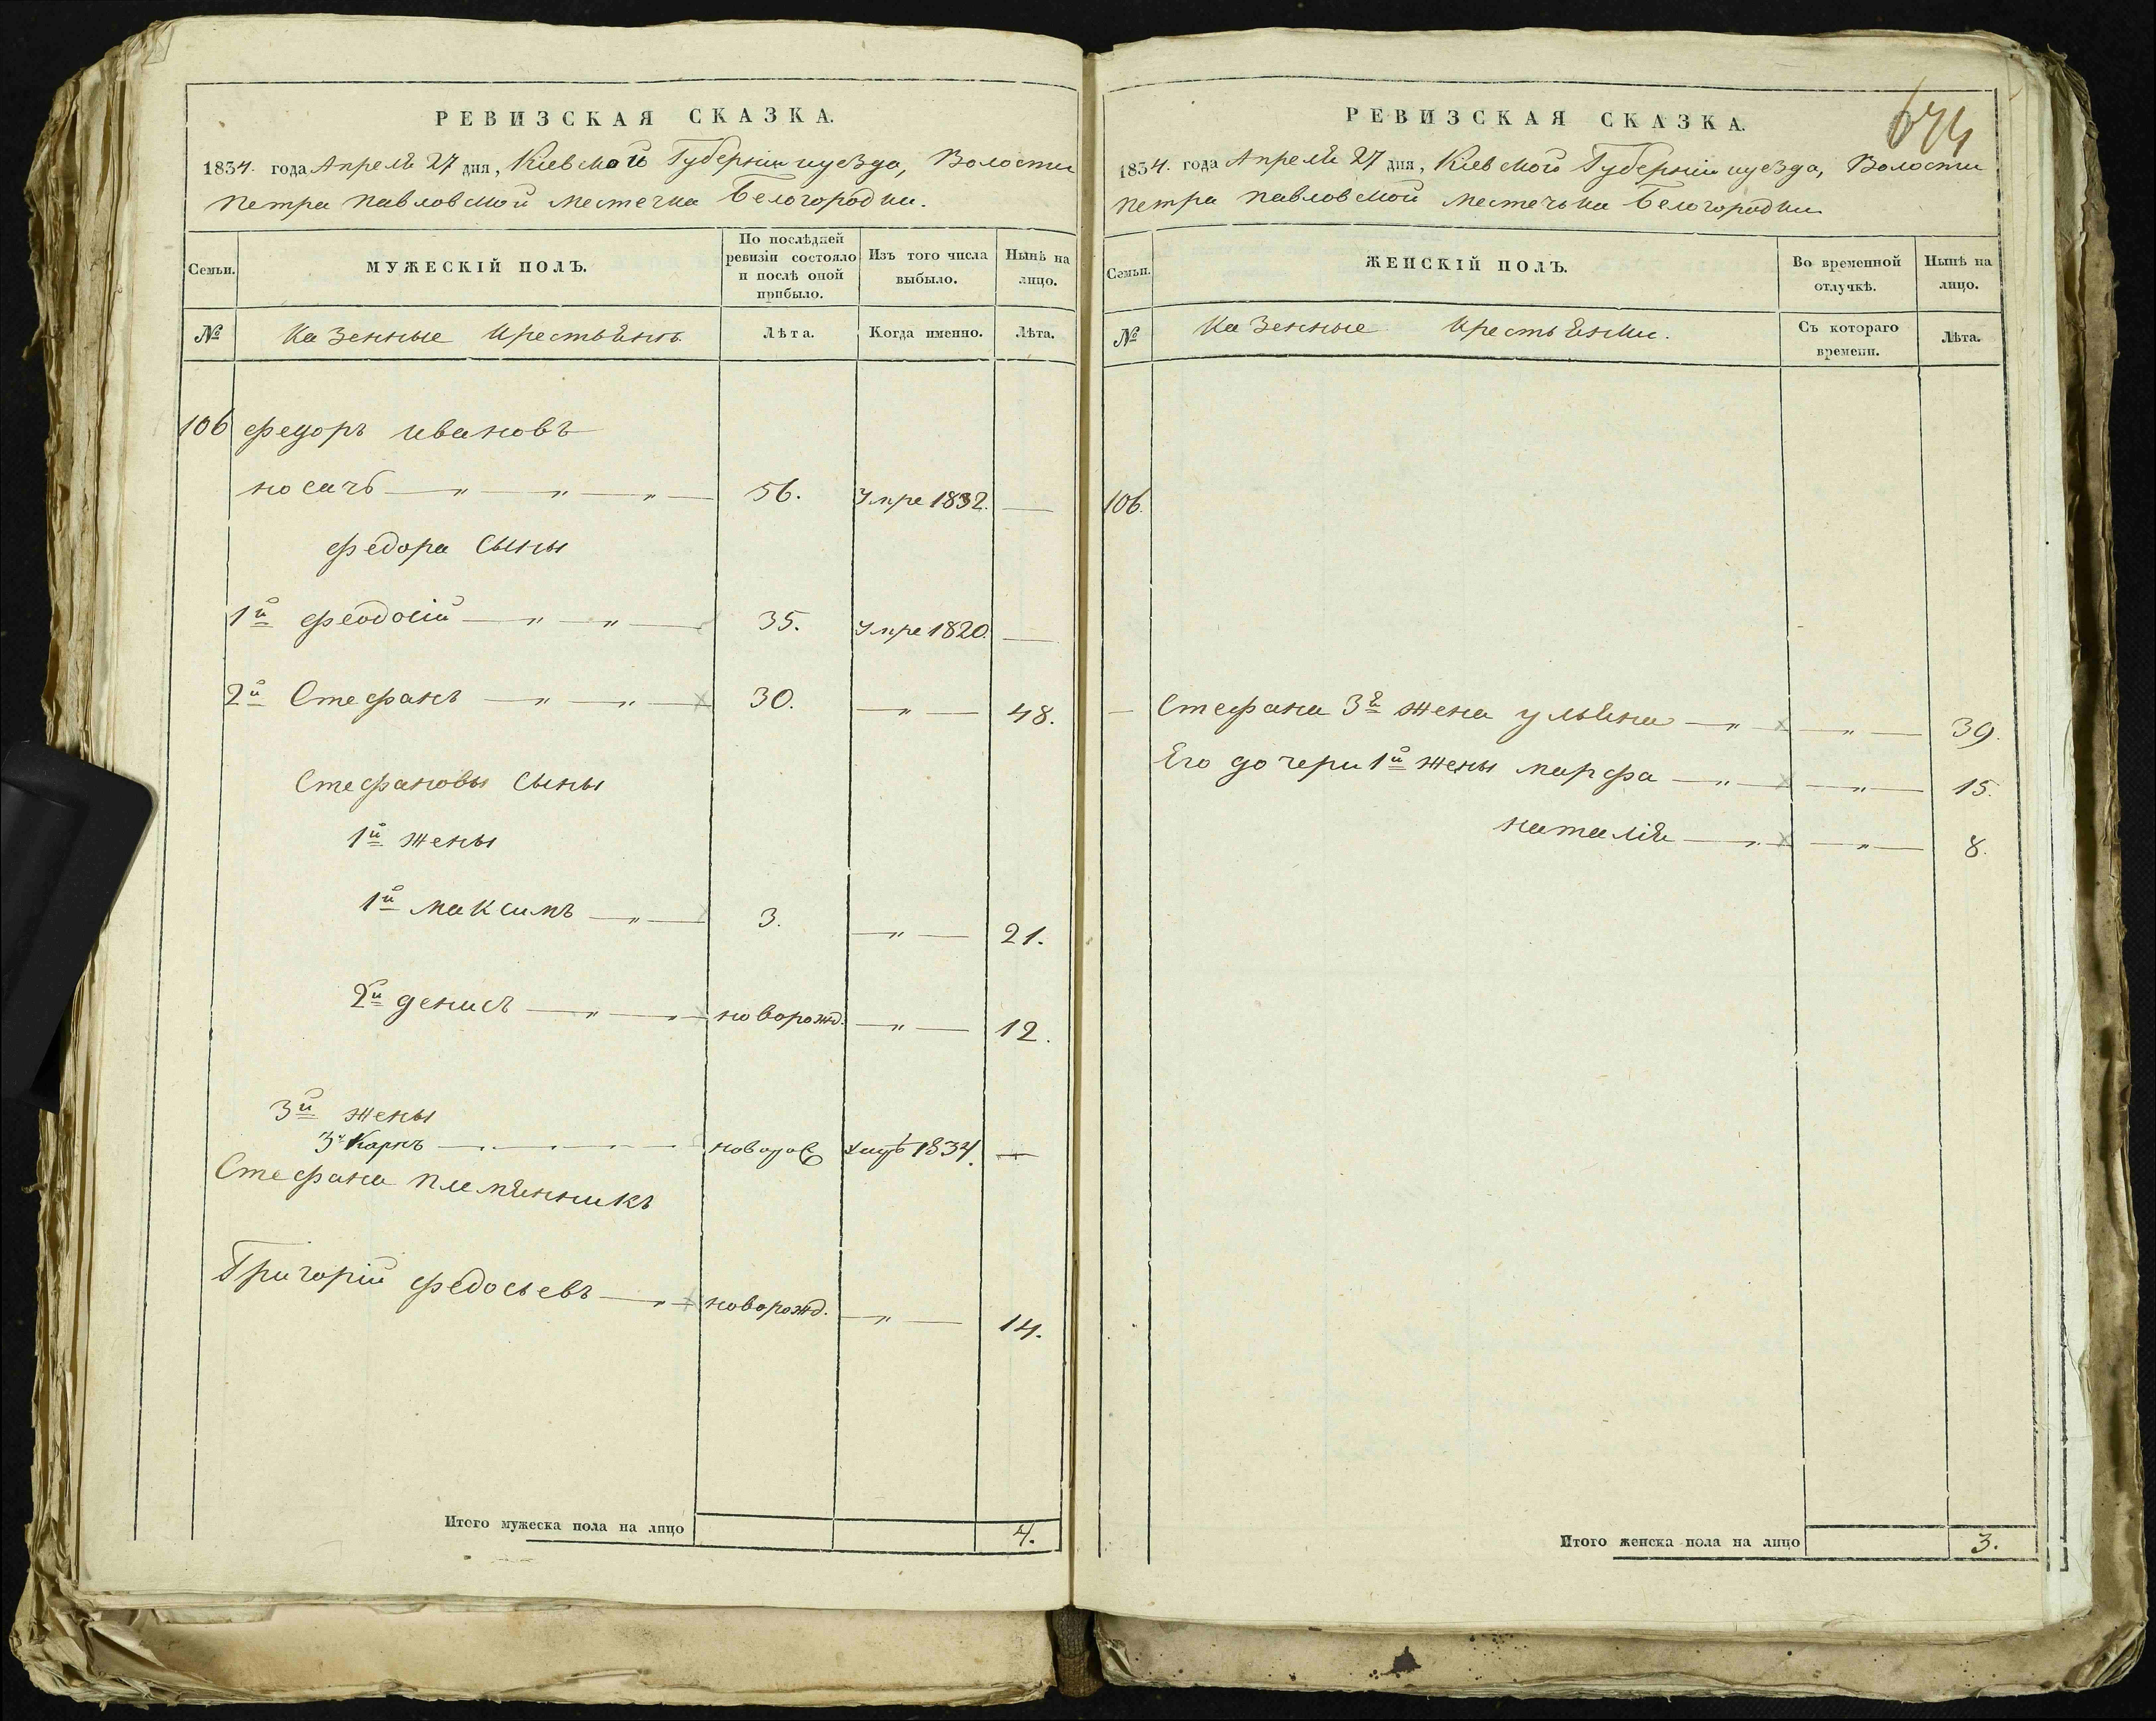 РЕВИЗСКАЯ СКАЗКА.
1834. года Апреля 27 дня, Кіевской Губерніи иуезда, Волости
петра павловской местечка Белогородки.
Семьи.
МУЖЕСКІЙ ПОЛЪ.
По послѣдней ревизіи состояло и послѣ оной прибыло.
Изъ того числа выбыло.
Нынѣ на лицо.
№
Казенные крестьяне
Лѣта.
Когда именно.
Лѣта.
106 федоръ ивановъ
носачъ 56. Умре 1832.
федора сыны
1й феодосій 35. Умре 1820.
2й Стефанъ 30. 48.
Стефановы сыны
1й жены
1й максимъ 3. 21.
2й денисъ новорожд. 12.
3й жены
3й Карпъ 1834.
Стефана племянникъ
Григорій федосьевъ новорожд. 14.
Итого мужеска пола на лицо 4.
674
РЕВИЗСКАЯ СКАЗКА.
1834. года Апреля 27 дня, Кіевской Губерніи иуезда, Волости
петра павловской местечька Белогородки
Семьи.
ЖЕНСКІЙ ПОЛЪ.
Во временной отлучкѣ.
Нынѣ на лицо.
№
Казенные крестьянки.
Съ котораго времени.
Лѣта.
106.
Стефана 3я жена ульяна 39.
Его дочери 1й жены марфа 15.
наталія 8.
Итого женска пола на лицо 3.